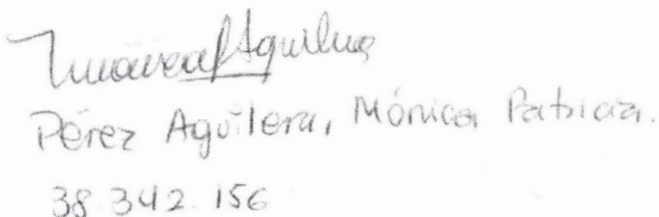 Pérez Aguilera, Mónica Patricia.
38 342 156